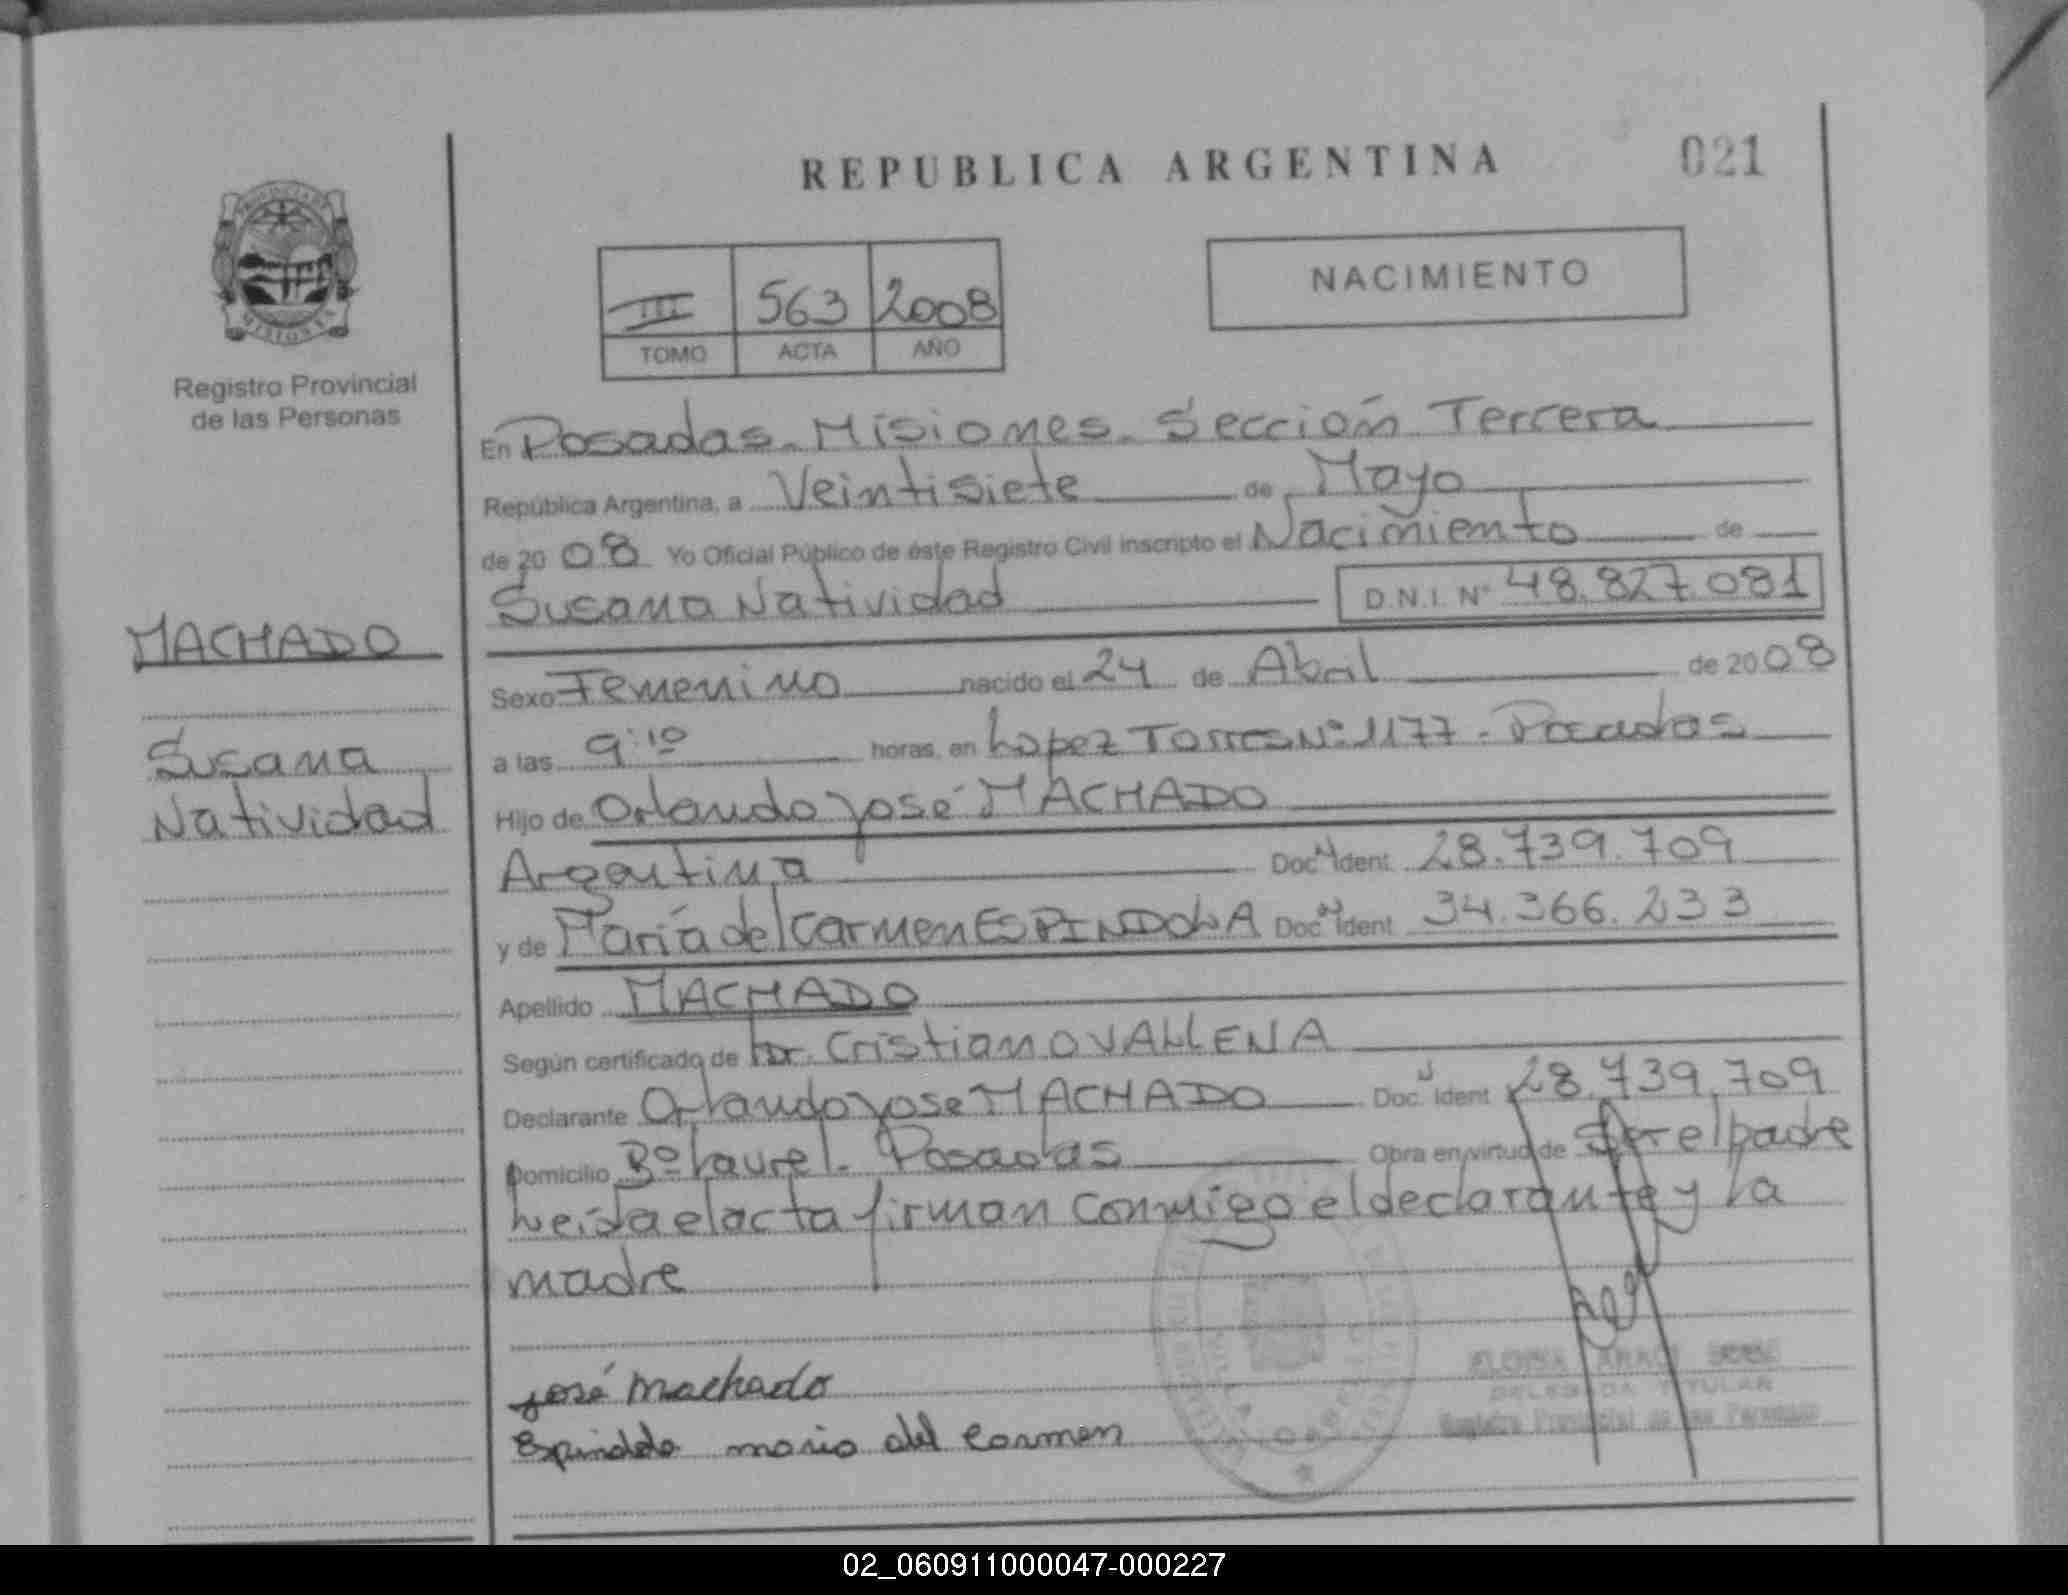 REPUBLICA ARGENTINA
021
PROVINCIA DE
MISIONES
Registro Provincial
de las Personas
III 563 2008
TOMO ACTA AÑO
NACIMIENTO
En Posadas. Misiones. Sección Tercera
República Argentina, a Veintisiete de Mayo
de 2008 Yo Oficial Público de éste Registro Civil inscripto el Nacimiento de
Susana Natividad D.N.I. Nº 48.827.081
MACHADO
Susana
Natividad
Sexo Femenino nacido el 24 de Abril de 2008
a las 9:10 horas, en Lopez Torres Nº 1177 - Posadas
Hijo de Orlando José MACHADO
Argentina Doc. Ident. 28.739.709
y de María del Carmen ESPINDOLA Doc. Ident. 34.366.233
Apellido MACHADO
Según certificado de Dr. Cristian OVALLENA
Declarante Orlando Jose MACHADO Doc. Ident 28.739.709
Domicilio Bº Laurel. Posadas Obra en virtud de Ser el padre
Leída el acta firman conmigo el declarante y la
madre
José Machado
Espindola maria del Carmen
DELEGADA TITULAR
Registro Provincial de las Personas
02_060911000047-000227